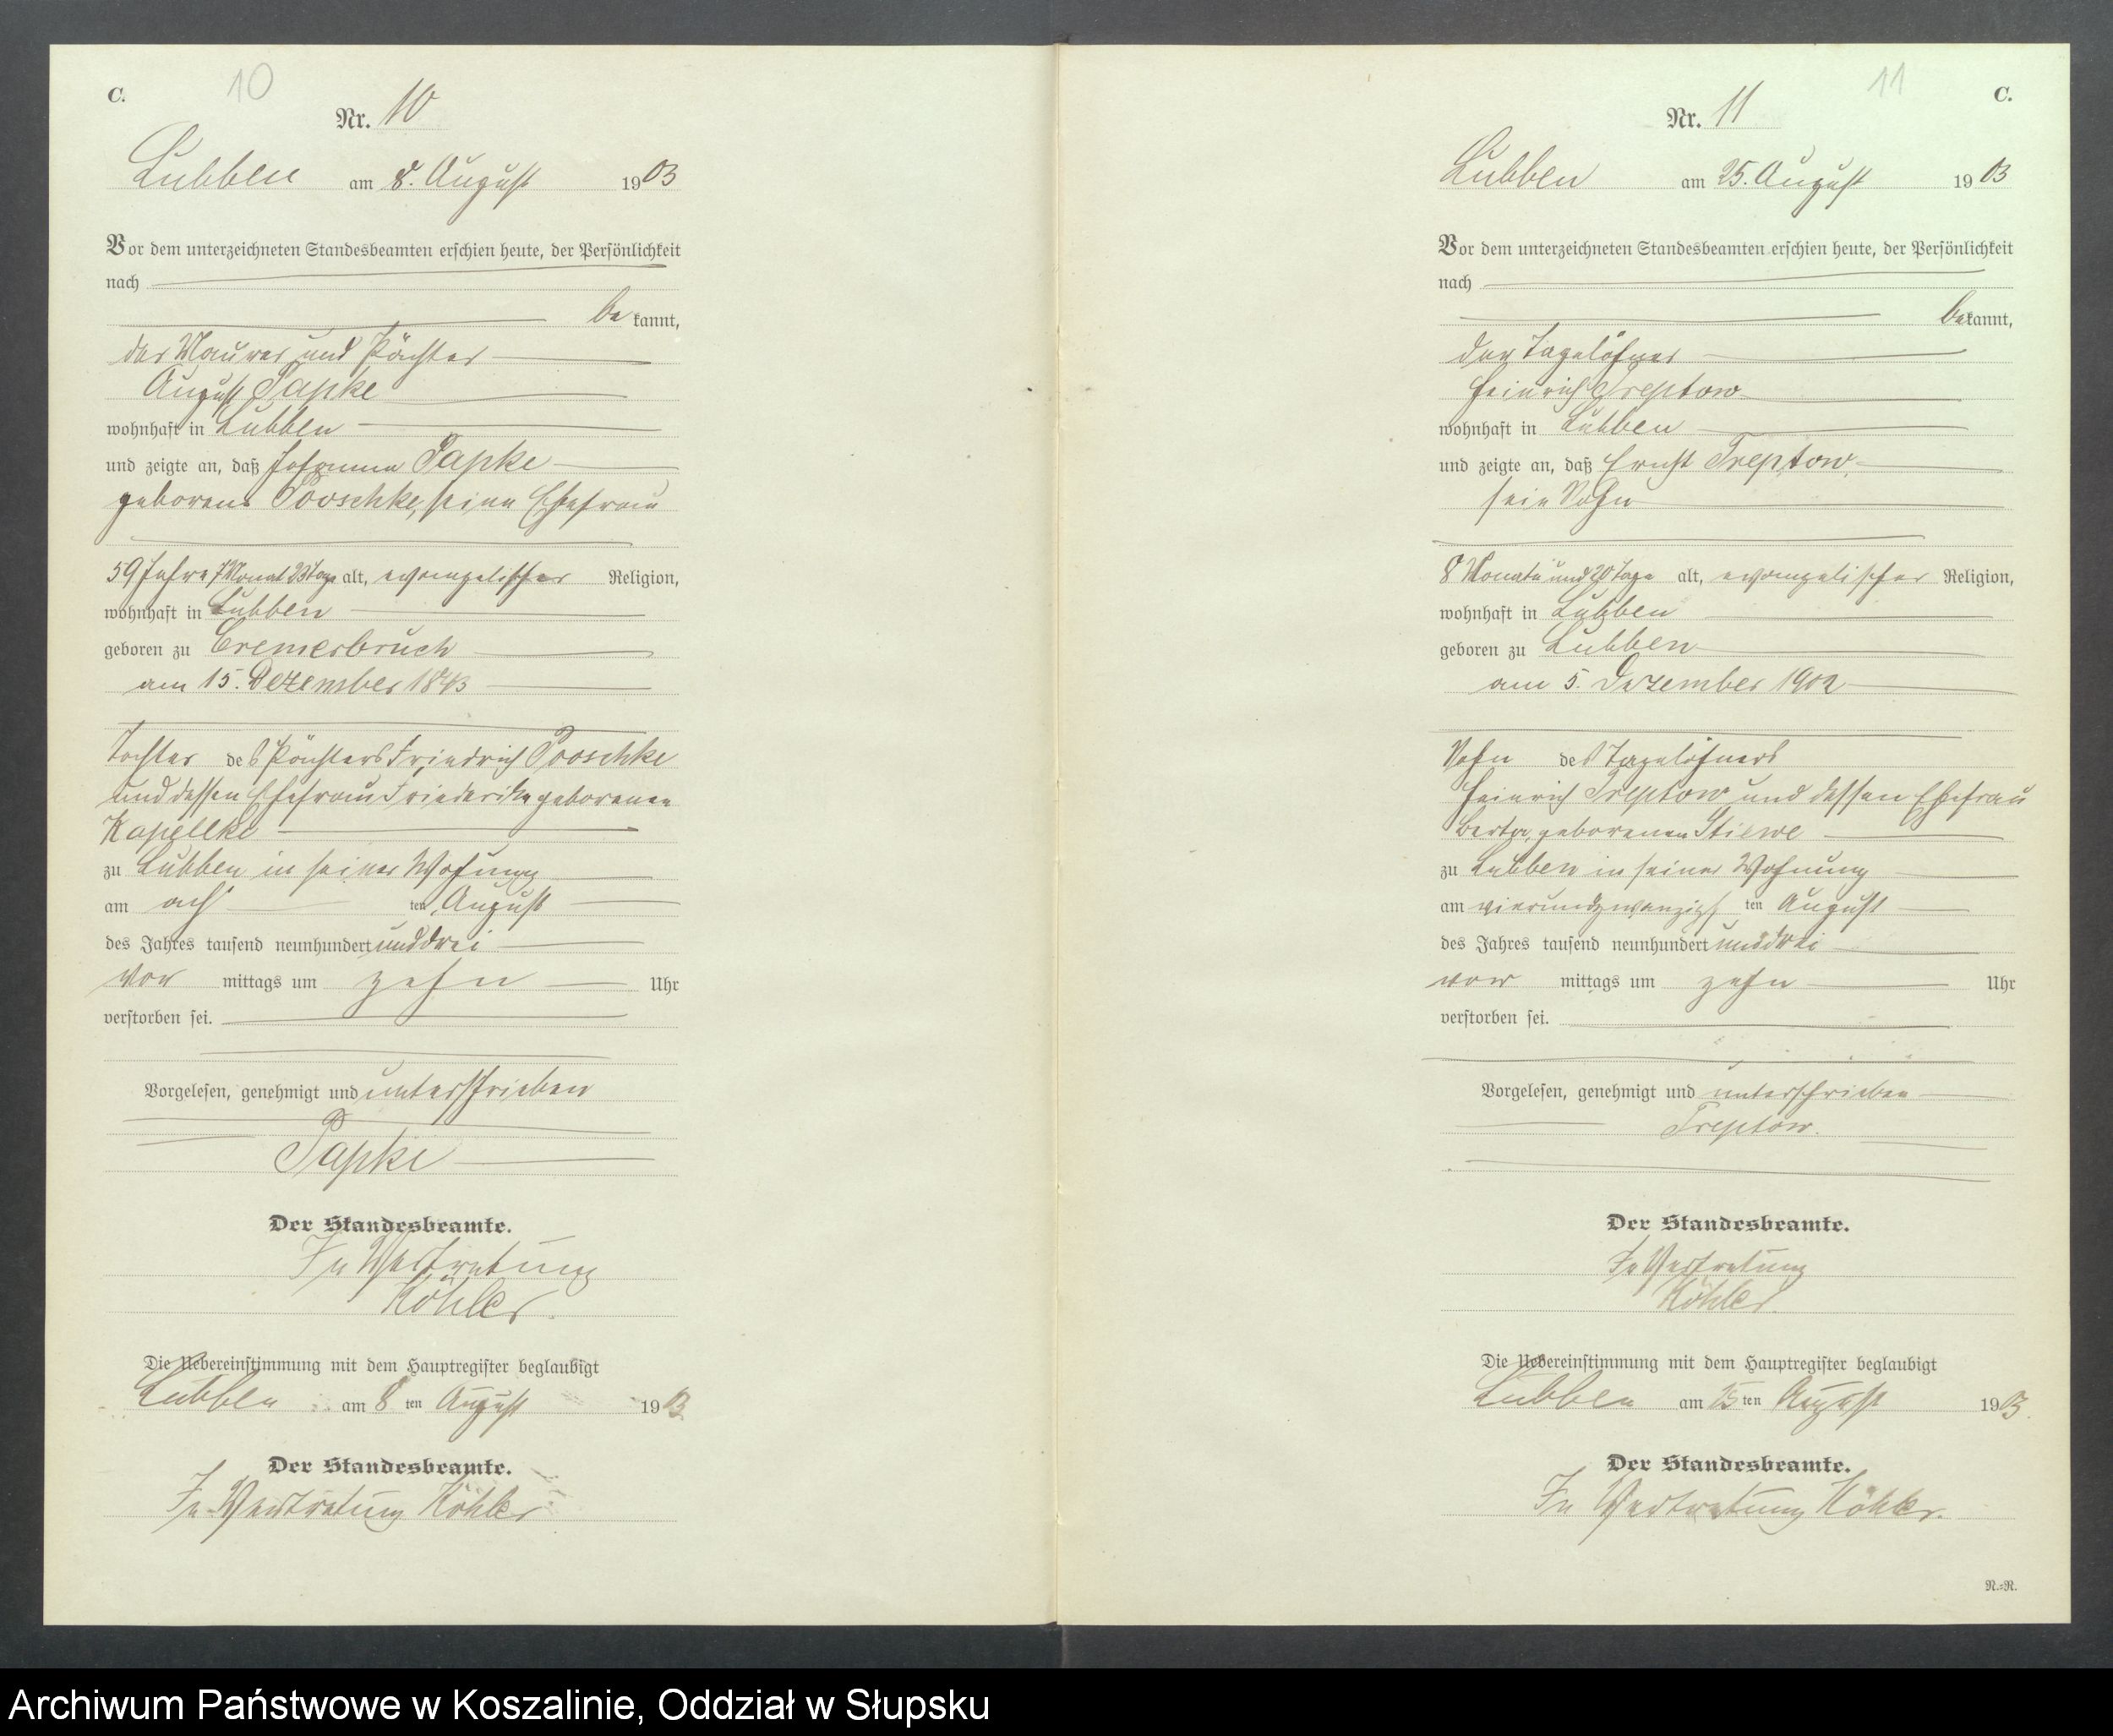 C.
10
Nr. 10
Lubben am 8. August 1903
Vor dem unterzeichneten Standesbeamten erschien heute, der Persönlichkeit
nach
bekannt,
der Maurer und Pächter
August Papke
wohnhaft in Lubben
und zeigte an, daß Johanna Papke
geborene Pooschke, seine Ehefrau
59 Jahre 7 Monat 23 Tage alt, evangelischer Religion,
wohnhaft in Lubben
geboren zu Cremerbruch
am 15. Dezember 1843
Tochter des Pächters Friedrich Pooschke
und dessen Ehefrau Friederike geborenen
Kapellke
zu Lubben in seiner Wohnung
am ach ten August
des Jahres tausend neunhundert und drei
vor mittags um zehn Uhr
verstorben sei.
Vorgelesen, genehmigt und unterschrieben
Papke
Der Standesbeamte.
In Vertretung
Köhler.
Die Uebereinstimmung mit dem Hauptregister beglaubigt
Lubben am 8 ten August 1903
Der Standesbeamte.
In Vertretung Köhler
11
C.
Nr. 11
Lubben am 25. August 1903
Vor dem unterzeichneten Standesbeamten erschien heute, der Persönlichkeit
nach
bekannt,
der Tagelöhner
Heinrich Treptow
wohnhaft in Lubben
und zeigte an, daß Ernst Treptow,
sein Sohn
8 Monate und 20 Tage alt, evangelischer Religion,
wohnhaft in Lubben
geboren zu Lubben
am 5. Dezember 1902
Sohn des Tagelöhners
Heinrich Treptow und dessen Ehefrau
Berta, geborenen Stiewe
zu Lubben in seiner Wohnung
am vierundzwanzigs ten August
des Jahres tausend neunhundert und drei
vor mittags um zehn Uhr
verstorben sei.
Vorgelesen, genehmigt und unterschrieben
Treptow.
Der Standesbeamte.
In Vertretung
Köhler.
Die Uebereinstimmung mit dem Hauptregister beglaubigt
Lubben am 25 ten August 1903.
Der Standesbeamte.
In Vertretung Köhler.
N.=N.
Archiwum Państwowe w Koszalinie, Oddział w Słupsku